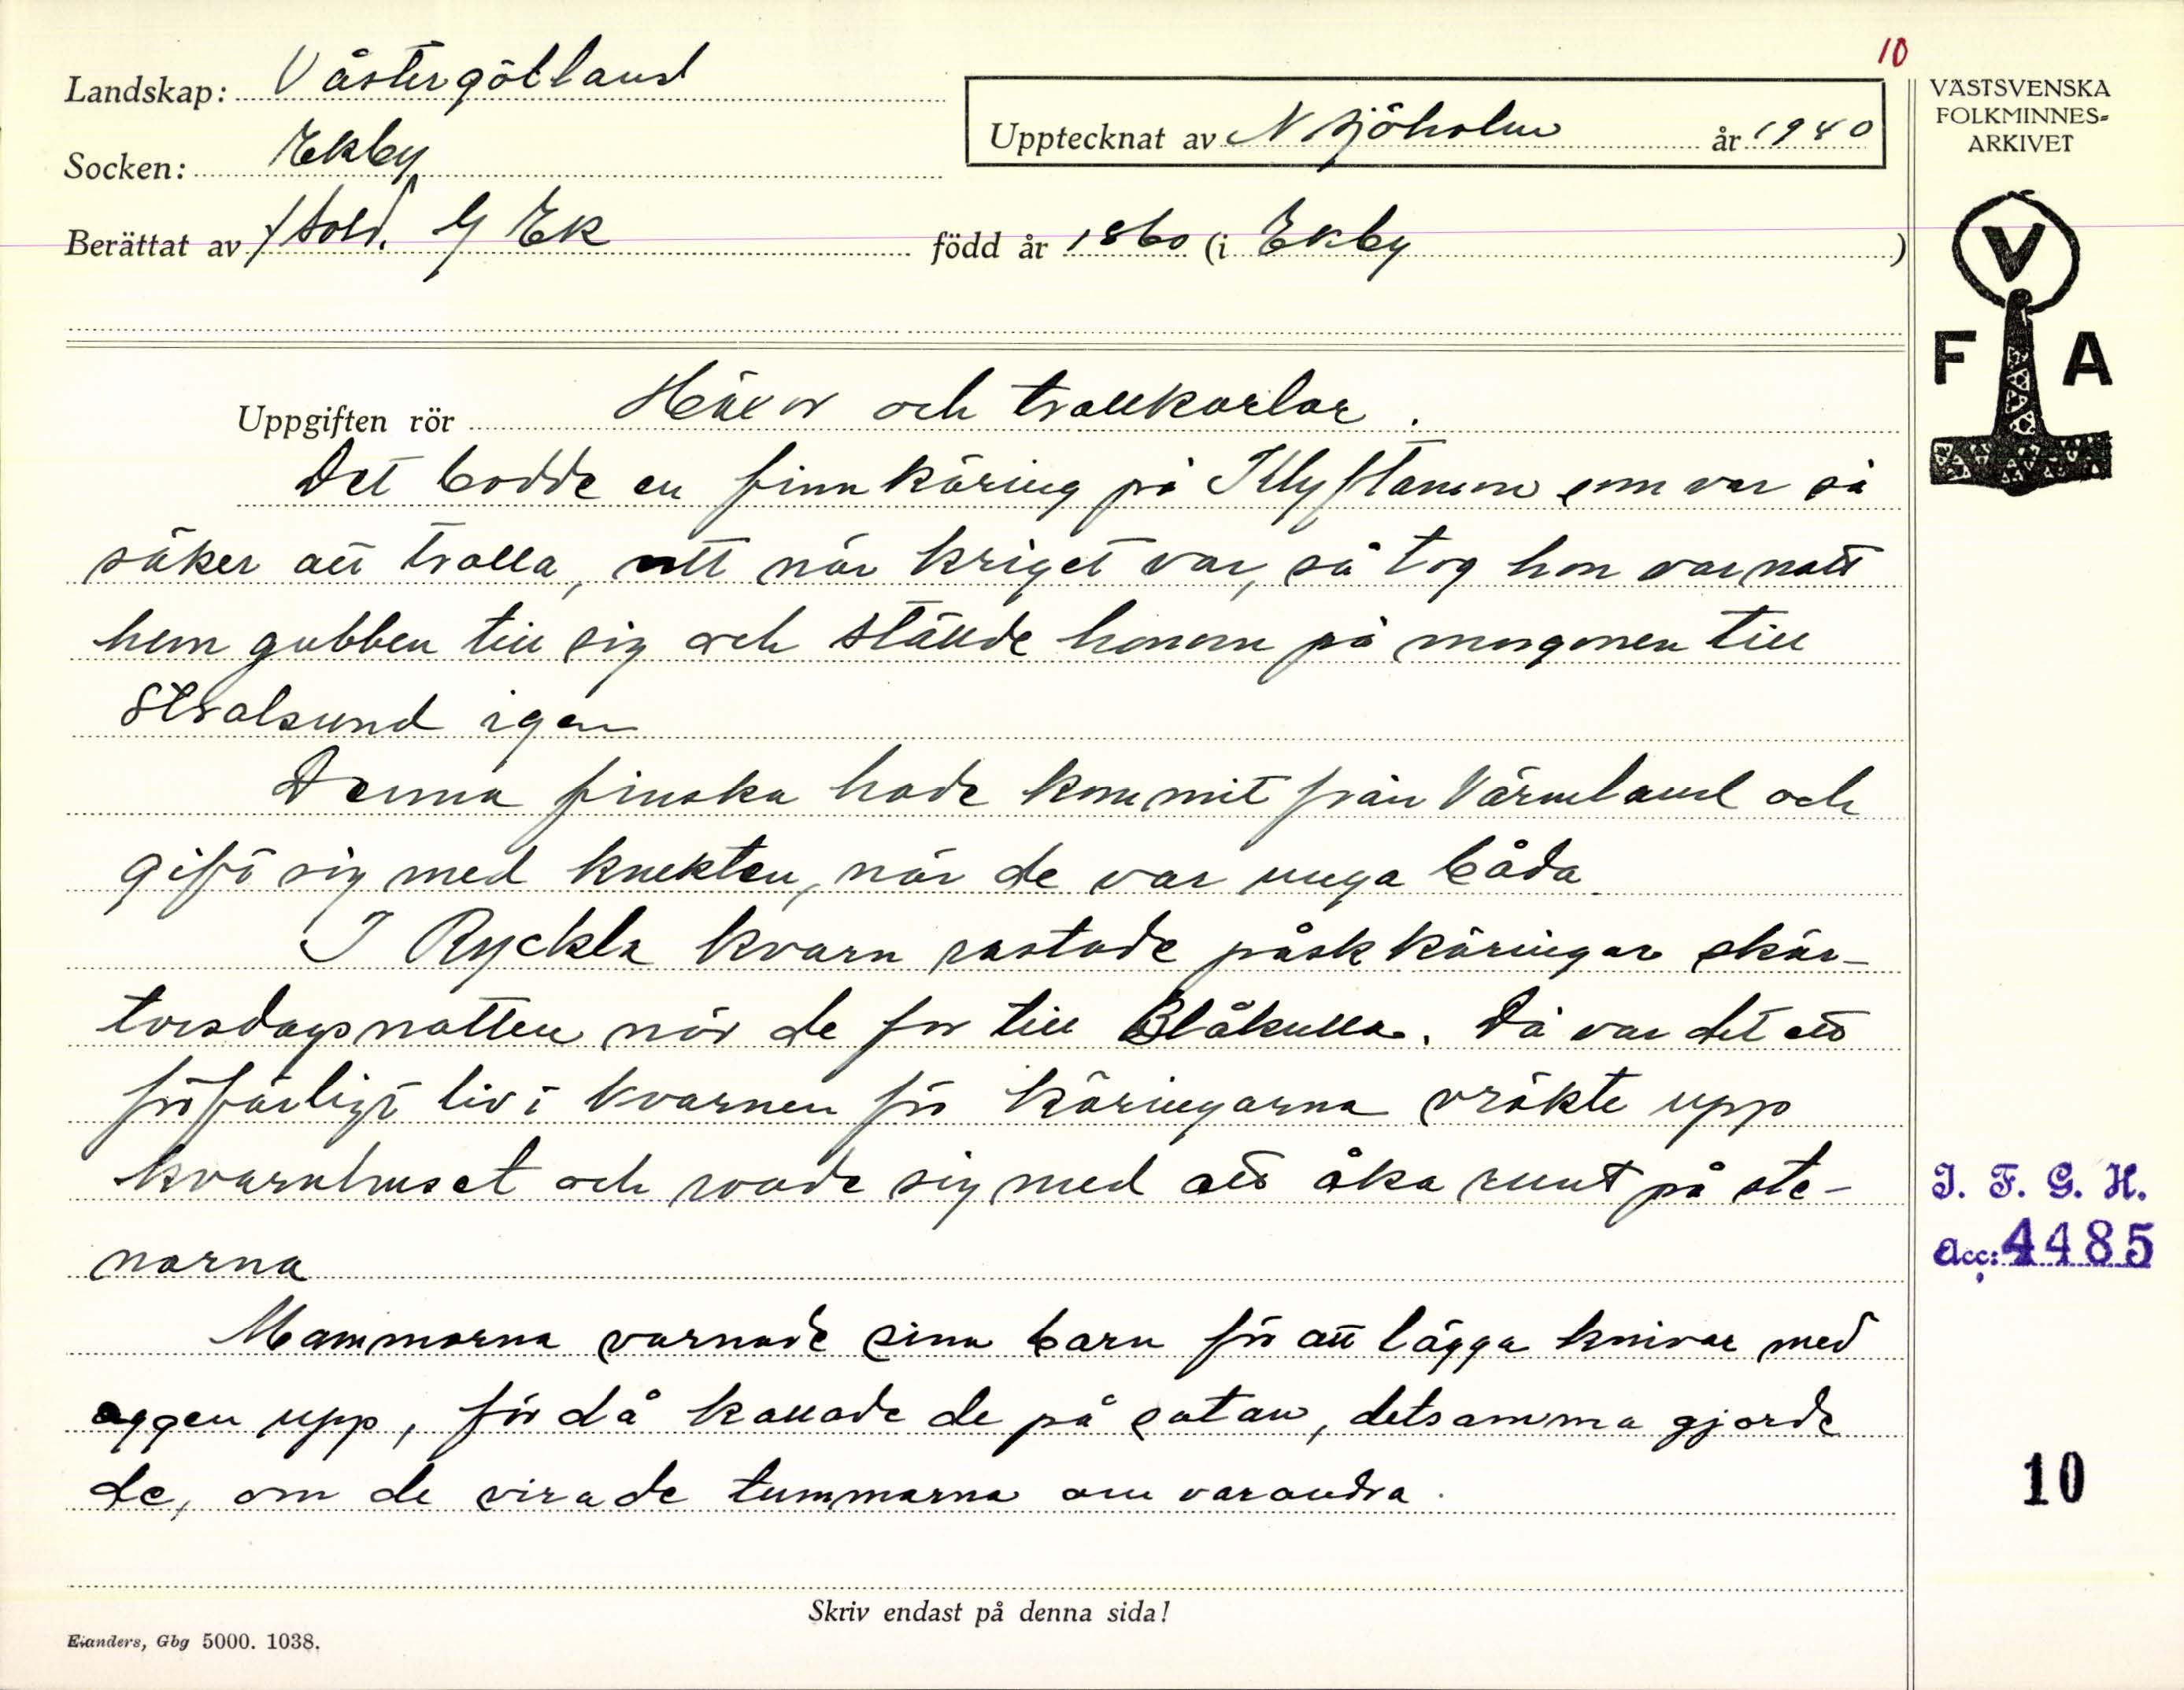 10
Landskap: Västergötland
Socken: Ekby
Upptecknat av N Sjöholm år 1940
Berättat av f sold. G Ek född år 1860 (i Ekby )
VÄSTSVENSKA
FOLKMINNES-
ARKIVET
V
F A
Uppgiften rör Häxor och trollkarlar.
Det bodde en finnkäring på Klyftamon som var så
säker att trolla, att när kriget var, så tog hon var natt
hem gubben till sig och ställde honom på morgonen till
Stralsund igen
Denna finska hade kommit från Värmland och
gift sig med knekten, när de var unga båda.
I Ryckla kvarn rastade påskkäringar skär-
torsdagsnatten när de for till Blåkulla. Då var det ett
förfärligt liv i kvarnen för käringarna vräkte upp
kvarnhuset och roade sig med att åka runt på ste-
narna
Mammorna varnade sina barn för att lägga knivar med
äggen upp, för då kallade de på satan, detsamma gjorde
de, om de virade tummarna om varandra.
I. F. G. H.
Acc: 4485
10
Skriv endast på denna sida!
Elanders, Gbg 5000. 1038.